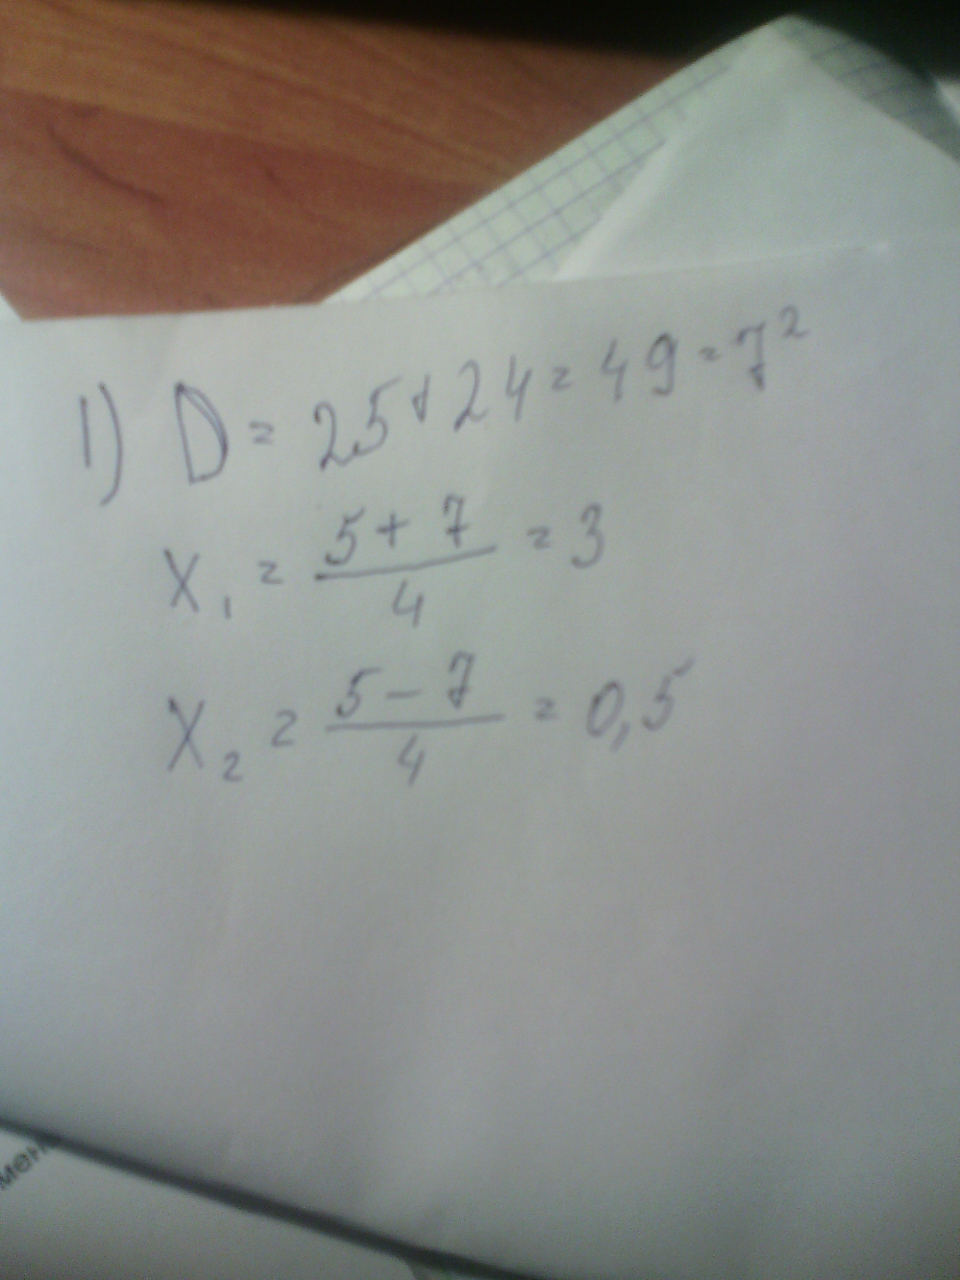 1) D = 25 + 24 = 49 = 7²
x₁ = (5 + 7)/4 = 3
x₂ = (5 - 7)/4 = 0,5